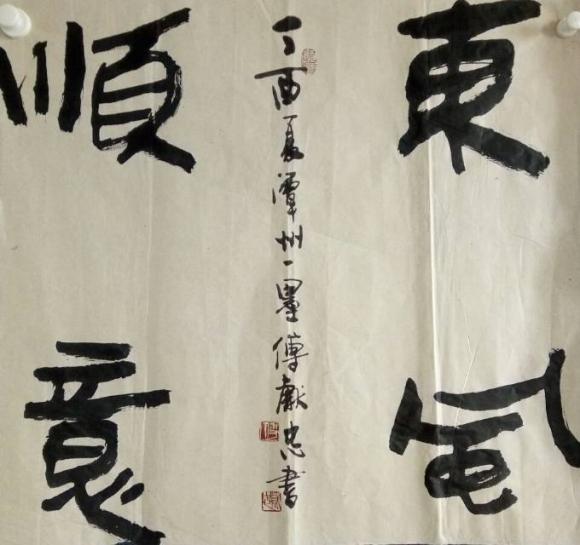 東風
丁酉夏潭州一墨傅獻忠書
順意